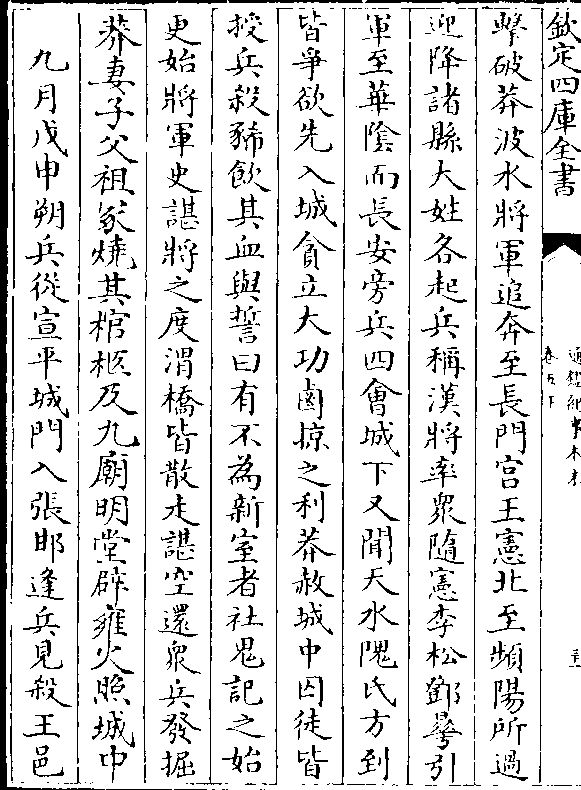 欽定四庫全書
通鑑紀事本末
卷五下
擊破莽波水將軍追奔至長門宫王憲北至頻陽所過
迎降諸縣大姓各起兵稱漢將率衆隨憲李松鄧曅引
軍至華隂而長安旁兵四會城下又聞天水隗氏方到
皆爭欲先入城貪立大功鹵掠之利莽赦城中囚徒皆
授兵殺豨飲其血與誓曰有不為新室者社鬼記之始
更始將軍史諶將之度渭橋皆散走諶空還衆兵發掘
莽妻子父祖冢燒其棺柩及九廟明堂辟雍火照城中
九月戊申朔兵從宣平城門入張邯逢兵見殺王邑